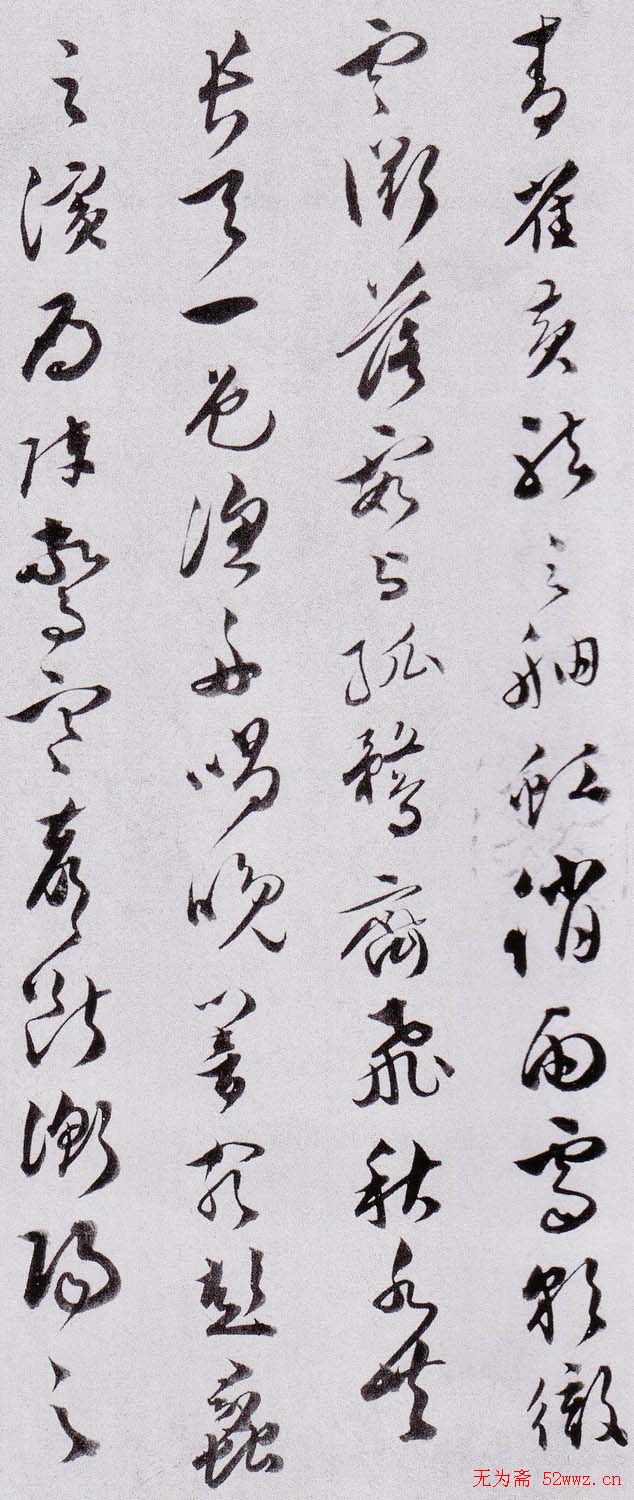 青雀黄龍之舳虹消雨霽彩徹
雲衢落霞与孤鶩齊飛秋水共
長天一色漁舟唱晚響窮彭蠡
之濱雁陣驚寒聲斷衡陽之
无为斋 52wwz.cn